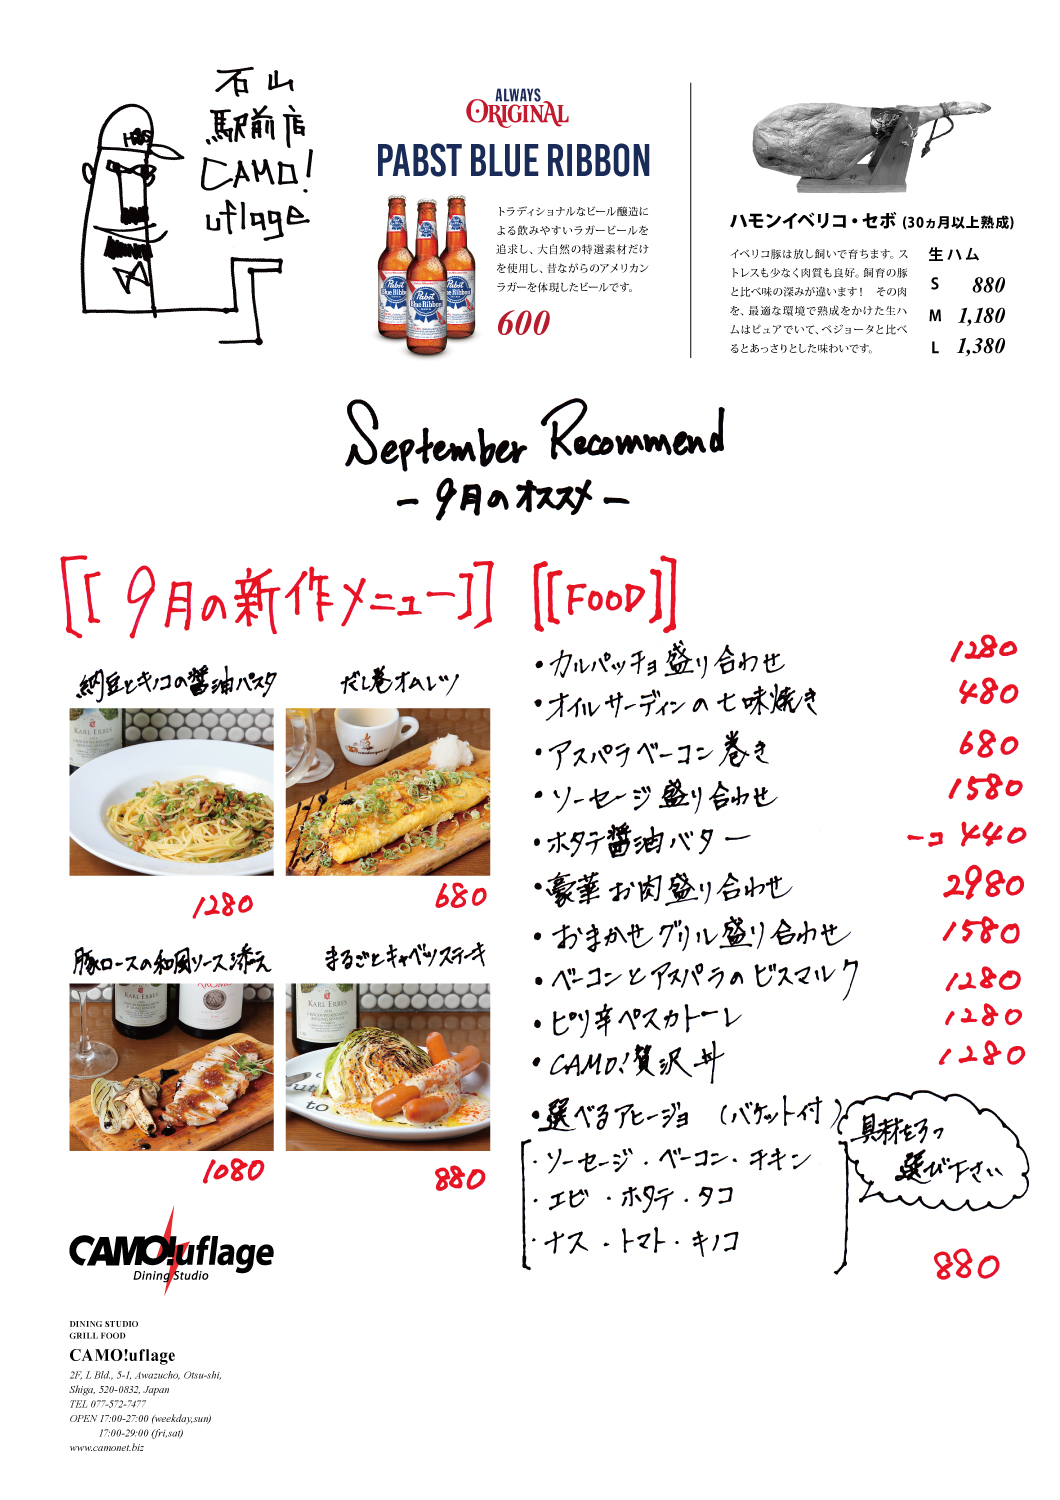 石山
駅前店
CAMO!
uflage
ALWAYS
ORIGINAL
PABST BLUE RIBBON
トラディショナルなビール醸造に
よる飲みやすいラガービールを
追求し、大自然の特選素材だけ
を使用し、昔ながらのアメリカン
ラガーを体現したビールです。
600
ハモンイベリコ・セボ (30ヵ月以上熟成)
イベリコ豚は放し飼いで育ちます。ス
トレスも少なく肉質も良好。飼育の豚
と比べ味の深みが違います！ その肉
を、最適な環境で熟成をかけた生ハ
ムはピュアでいて、ベジョータと比べ
るとあっさりとした味わいです。
生ハム
S 880
M 1,180
L 1,380
September Recommend
- 9月のオススメ -
[[9月の新作メニュー]]
納豆とキノコの醤油パスタ
だし巻オムレツ
KARL ERBES
1280
680
豚ロースの和風ソース添え
まるごとキャベツステーキ
KARL ERBES
KARL ERBES
1080
880
[[FOOD]]
・カルパッチョ盛り合わせ 1280
・オイルサーディンの七味焼き 480
・アスパラベーコン巻き 680
・ソーセージ盛り合わせ 1580
・ホタテ醤油バター 一コ 440
・豪華お肉盛り合わせ 2980
・おまかせグリル盛り合わせ 1580
・ベーコンとアスパラのビスマルク 1280
・ピリ辛ペスカトーレ 1280
・CAMO!贅沢丼 1280
・選べるアヒージョ (バケット付)
具材を3つ
選び下さい
・ソーセージ・ベーコン・チキン
・エビ・ホタテ・タコ
・ナス・トマト・キノコ
880
CAMO!uflage
Dining Studio
DINING STUDIO
GRILL FOOD
CAMO!uflage
2F, L Bld., 5-1, Awazucho, Otsu-shi,
Shiga, 520-0832, Japan
TEL 077-572-7477
OPEN 17:00-27:00 (weekday,sun)
17:00-29:00 (fri,sat)
www.camonet.biz